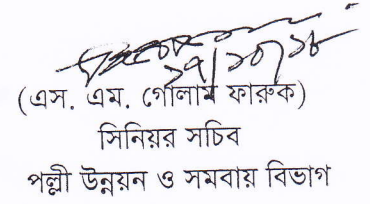 ২৭/১০/১৮
(এস. এম. গোলাম ফারুক)
সিনিয়র সচিব
পল্লী উন্নয়ন ও সমবায় বিভাগ